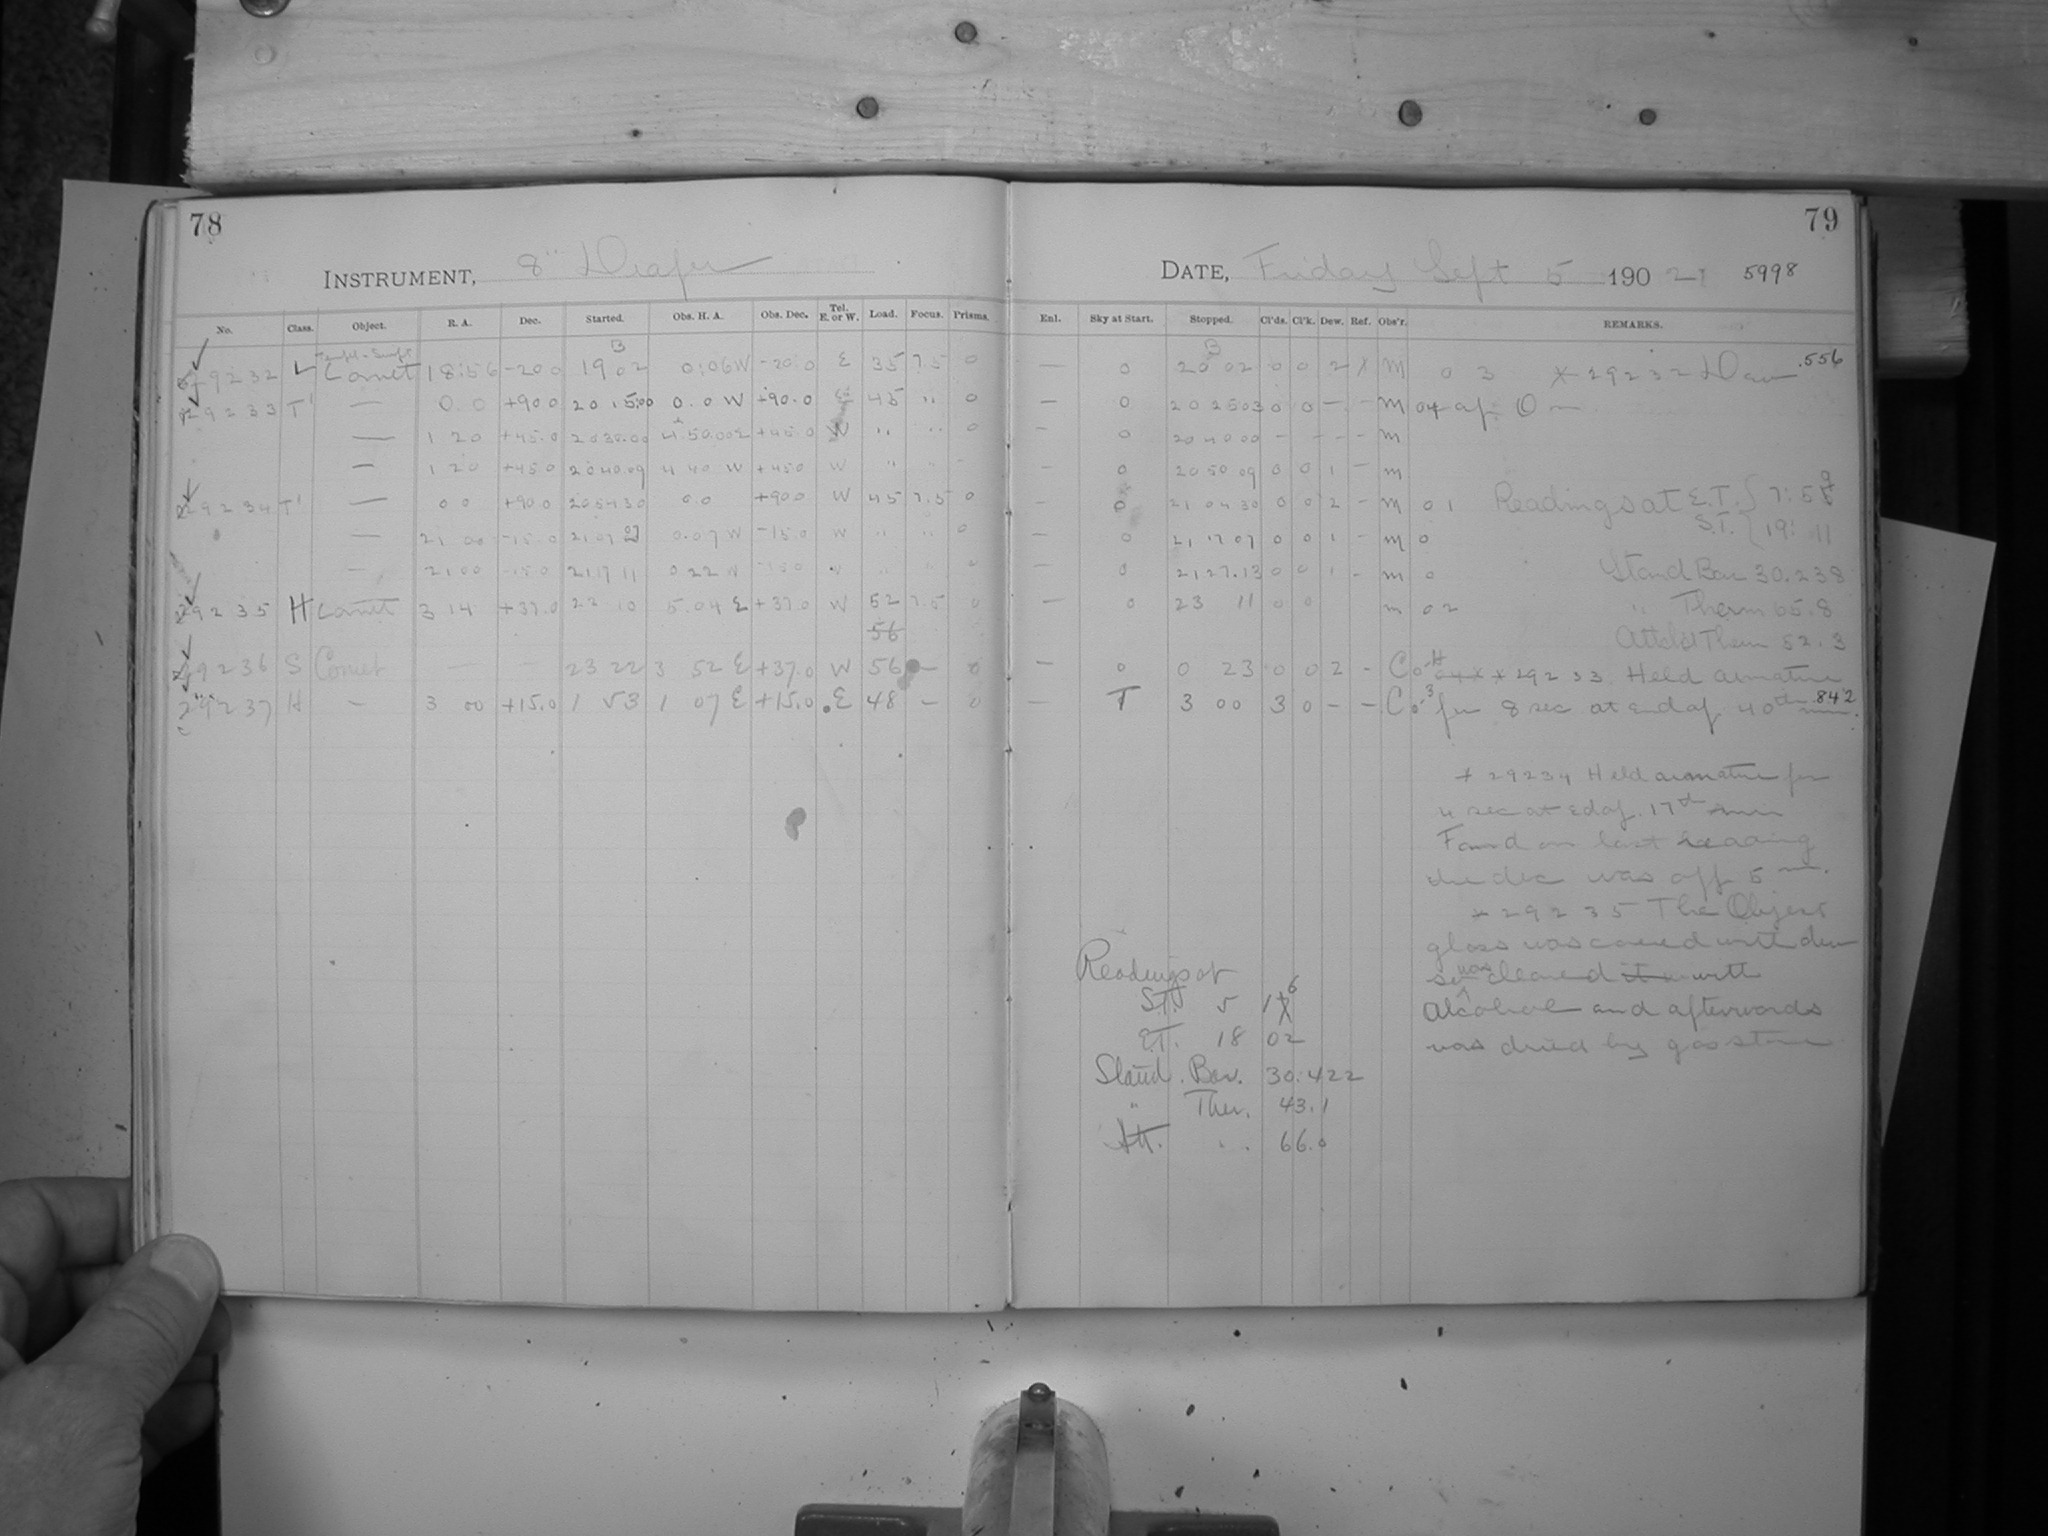 78
79
INSTRUMENT, 8" Draper
DATE, Friday Sept 5 1902 5998
No. Class. Object. R. A. Dec. Started. Obs. H. A. Obs. Dec. Tel. E. or W. Load. Focus. Prisms.
Enl. Sky at Start. Stopped. Cl'ds. Cl'k. Dew. Ref. Obs'r. REMARKS.
29232 L Comet 18:56 -20 0 19 02 0:06 W -20:0 E 35 7.5 0 — 0 20 02 0 0 2 x M 0 3 x 29232 Dew .556
29233 T' — 0.0 +90 0 20 15:00 0.0 W +90.0 45 " 0 — 0 20 25 03 0 0 — - M 04 of 0
— 1 20 +45.0 20 30.00 4.50.00 E +45.0 W " " 0 - 0 20 40 00 - - - - M
— 1 20 +45 0 20 40.09 4 40 W +45 0 W " " - — 0 20 50 09 0 0 1 - M
29234 T' — 0 0 +90 0 20 54 30 0.0 +90 0 W 45 7.5 0 — 0 21 04 30 0 0 2 - M 0 1 Readings at E.T. 7:59
— 21 00 -15 0 21 07 0.07 W -15.0 W " " 0 — 0 21 17 07 0 0 1 - M 0 S.T. 19: 11
- 21 00 -15 0 21 17 11 0 22 W -15 0 " " " 0 — 0 21 27.13 0 0 1 - M 0 Stand Bar 30.238
29235 H Comet 3 14 +37.0 22 10 5.04 E +37.0 W 52 7.5 0 — 0 23 11 0 0 M 0 2 " Therm 65.8
56 Attchd Therm 52.3
29236 S Comet — — 23 22 3 52 E +37.0 W 56 — 0 — 0 0 23 0 0 2 - Co x 29233. Held armature
29237 H — 3 00 +15.0 1 53 1 07 E +15.0 E 48 — 0 — T 3 00 3 0 - - Co 3 for 8 sec at end of 40th min. .842
x 29234 Held armature for
4 sec at end of 17th min
Found on last reading
the dec was off 5 m.
x 29235 The Object
glass was covered with dew
so was cleaned it with
Alcohol and afterwards
was dried by gas stove
Readings at
S.T. 5 16
E.T. 18 02
Stand. Bar. 30.422
" Ther. 43.1
Att. " 66.0